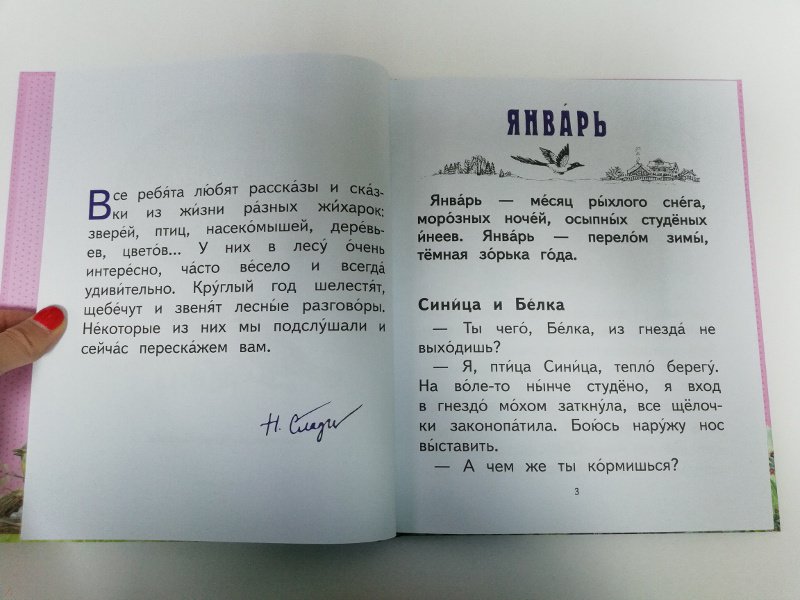 Все ребя́та лю́бят расска́зы и ска́з-
ки из жи́зни ра́зных жи́харок:
звере́й, птиц, насеко́мышей, дере́вь-
ев, цвето́в... У них в лесу́ о́чень
интере́сно, ча́сто ве́село и всегда́
удиви́тельно. Кру́глый год шелестя́т,
щебе́чут и звеня́т лесны́е разгово́ры.
Не́которые из них мы подслу́шали и
сейча́с переска́жем вам.
Н. Слади
ЯНВА́РЬ
Янва́рь — ме́сяц ры́хлого сне́га,
моро́зных ноче́й, осыпны́х студёных
и́неев. Янва́рь — перело́м зимы́,
тёмная зо́рька го́да.
Сини́ца и Бе́лка
— Ты чего́, Бе́лка, из гнезда́ не
выхо́дишь?
— Я, пти́ца Сини́ца, тепло́ берегу́.
На во́ле-то ны́нче студёно, я вход
в гнездо́ мо́хом заткну́ла, все щёлоч-
ки законопа́тила. Бою́сь нару́жу нос
вы́ставить.
— А чем же ты ко́рмишься?
3